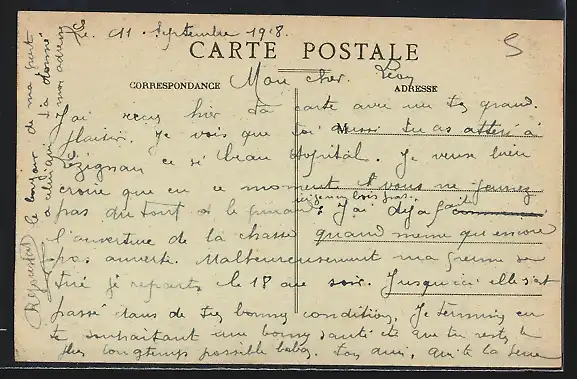 Le 11 Septembre 1918.
CARTE POSTALE
CORRESPONDANCE
ADRESSE
5
Mon cher Léon
J'ai reçu hier ta carte avec un très grand
plaisir. Je vois que toi aussi tu as atterri à
Lézignan ce si beau Hopital. Je veux bien
croire que en ce moment et vous ne
pas du tout J'ai déjà fait
l'ouverture de la chasse quand meme qui encore
pas ouverte. Malheureusement ma perme se
tire je repars le 18 au soir. Jusqu'ici elle s'est
passé dans de très bonnes conditions. Je termine en
te souhaitant une bonne santé et que tu restes le
plus longtemps possible Ton ami, qui te la serre
le bonjour de ma part
à
t'a donné
mon adresse